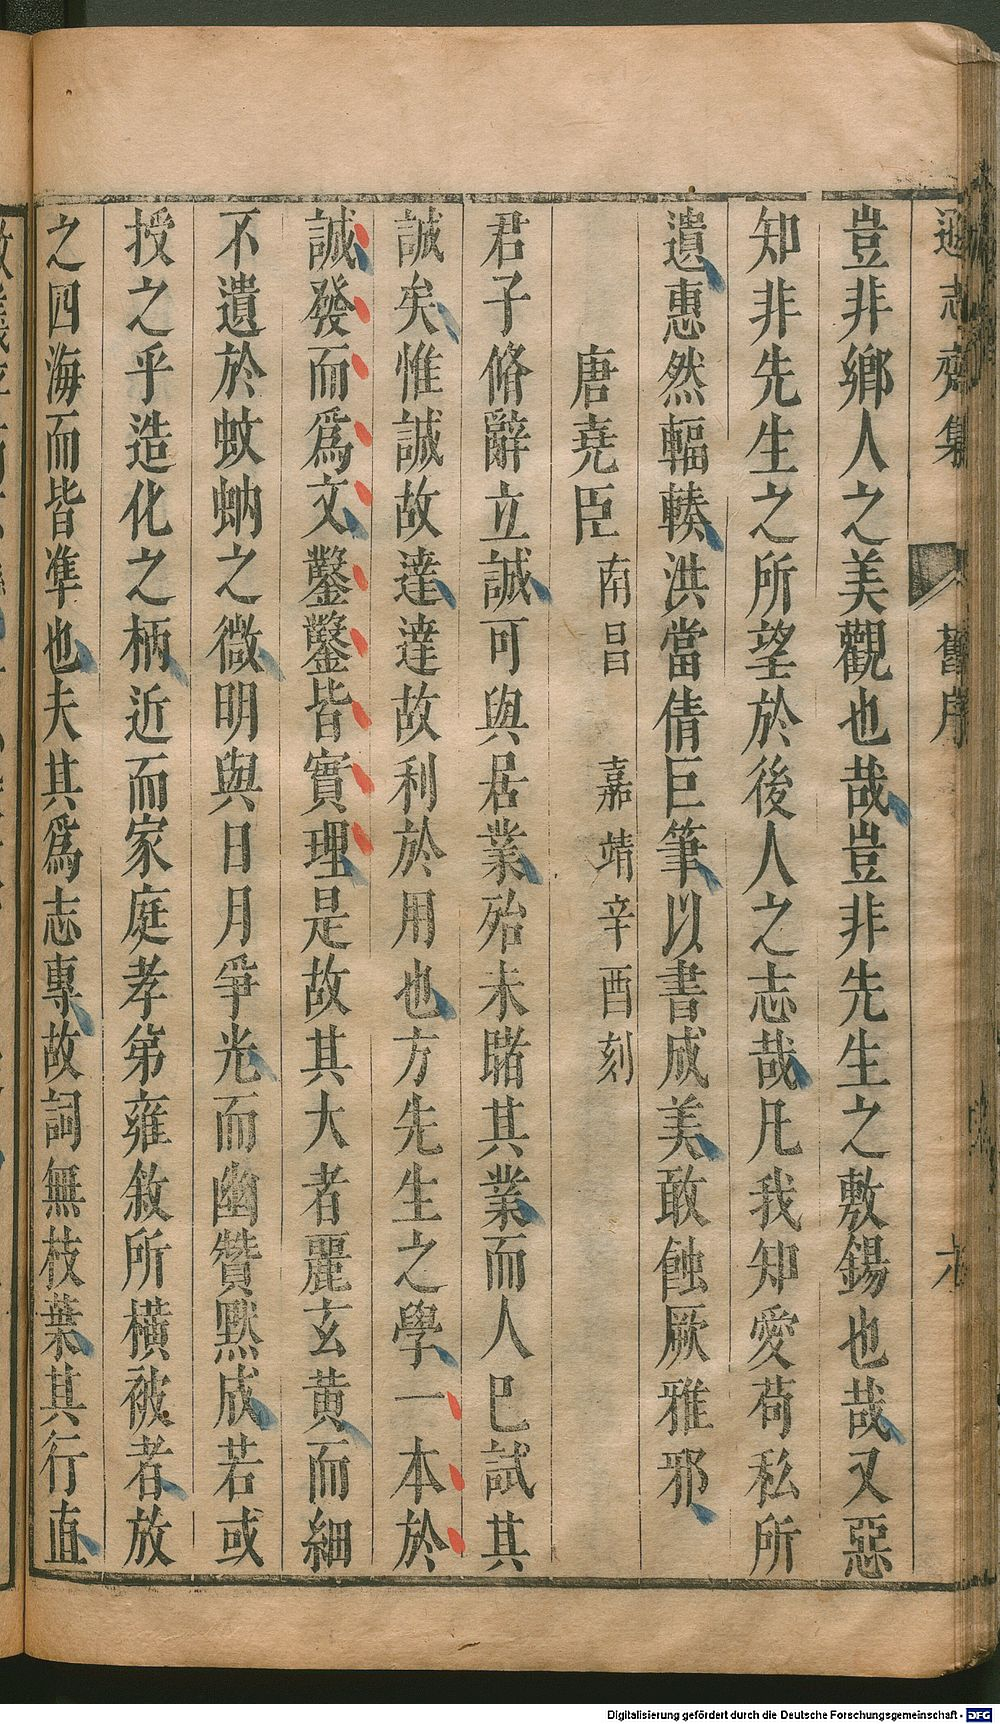 遜志齋集 舊序
豈非鄉人之美觀也哉豈非先生之敷錫也哉又惡
知非先生之所望於後人之志哉凡我知愛苟私所
遺惠然輻輳洪當倩巨筆以書成美敢蝕厥雅邪
唐堯臣 南昌 嘉靖辛酉刻
君子脩辭立誠可與居業殆未睹其業而人巳試其
誠矣惟誠故達達故利於用也方先生之學一本於
誠發而爲文鑿鑿皆實理是故其大者麗玄黃而細
不遺於蚊蚋之微明與日月爭光而幽贊默成若或
授之乎造化之柄近而家庭孝弟雍敘所橫被者放
之四海而皆準也夫其爲志專故詞無枝葉其行直
Digitalisierung gefördert durch die Deutsche Forschungsgemeinschaft - DFG